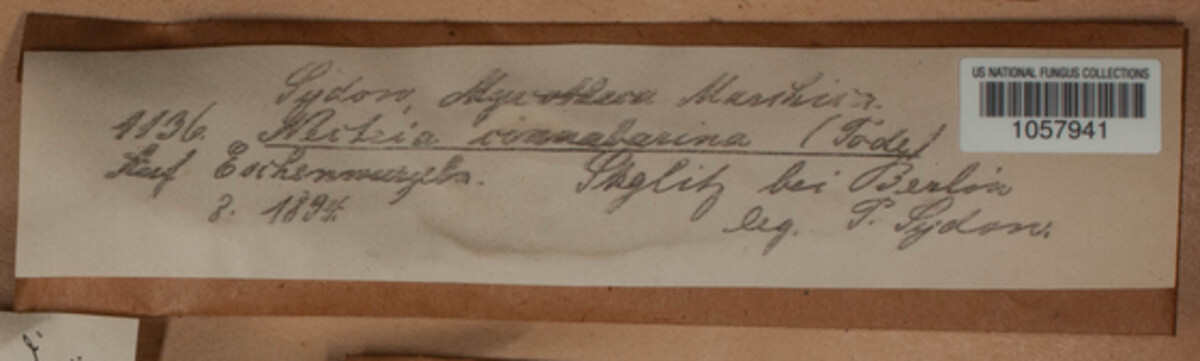 Sydow, Mycotheca Marchica.
1136. Nectria cinnabarina (Tode)
Auf Eschenwurzeln. Steglitz bei Berlin
8. 1894. leg. P. Sydow.
US NATIONAL FUNGUS COLLECTIONS
1057941